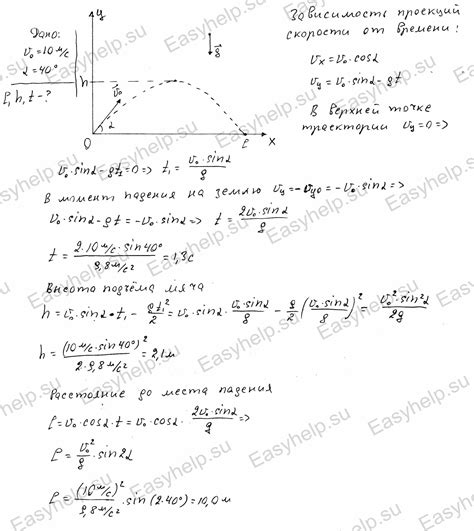 Дано:
v₀=10 м/с
α=40°
ℓ, h, t - ?
y
h
0
v⃗₀
α
g⃗
ℓ
x
Зависимость проекций
скорости от времени:
vx = v₀·cosα
vy = v₀·sinα - gt
В верхней точке
траектории vy=0 =>
v₀·sinα - gt₁=0 => t₁ = v₀·sinα/g
В момент падения на землю vy = -vy₀ = -v₀·sinα =>
v₀·sinα - gt = -v₀·sinα => t = 2v₀·sinα/g
t = 2·10 м/с·sin40°/9,8 м/с² = 1,3 с
Высота подъёма мяча
h = v₀·sinα·t₁ - gt₁²/2 = v₀·sinα · v₀·sinα/g - g/2 (v₀·sinα/g)² = v₀²·sin²α/2g
h = (10 м/с·sin40°)²/2·9,8 м/с² = 2,1 м
Расстояние до места падения
ℓ = v₀·cosα·t = v₀·cosα · 2v₀·sinα/g =>
ℓ = v₀²/g · sin2α
ℓ = (10 м/с)²/9,8 м/с² · sin(2·40°) = 10,0 м
Easyhelp.su